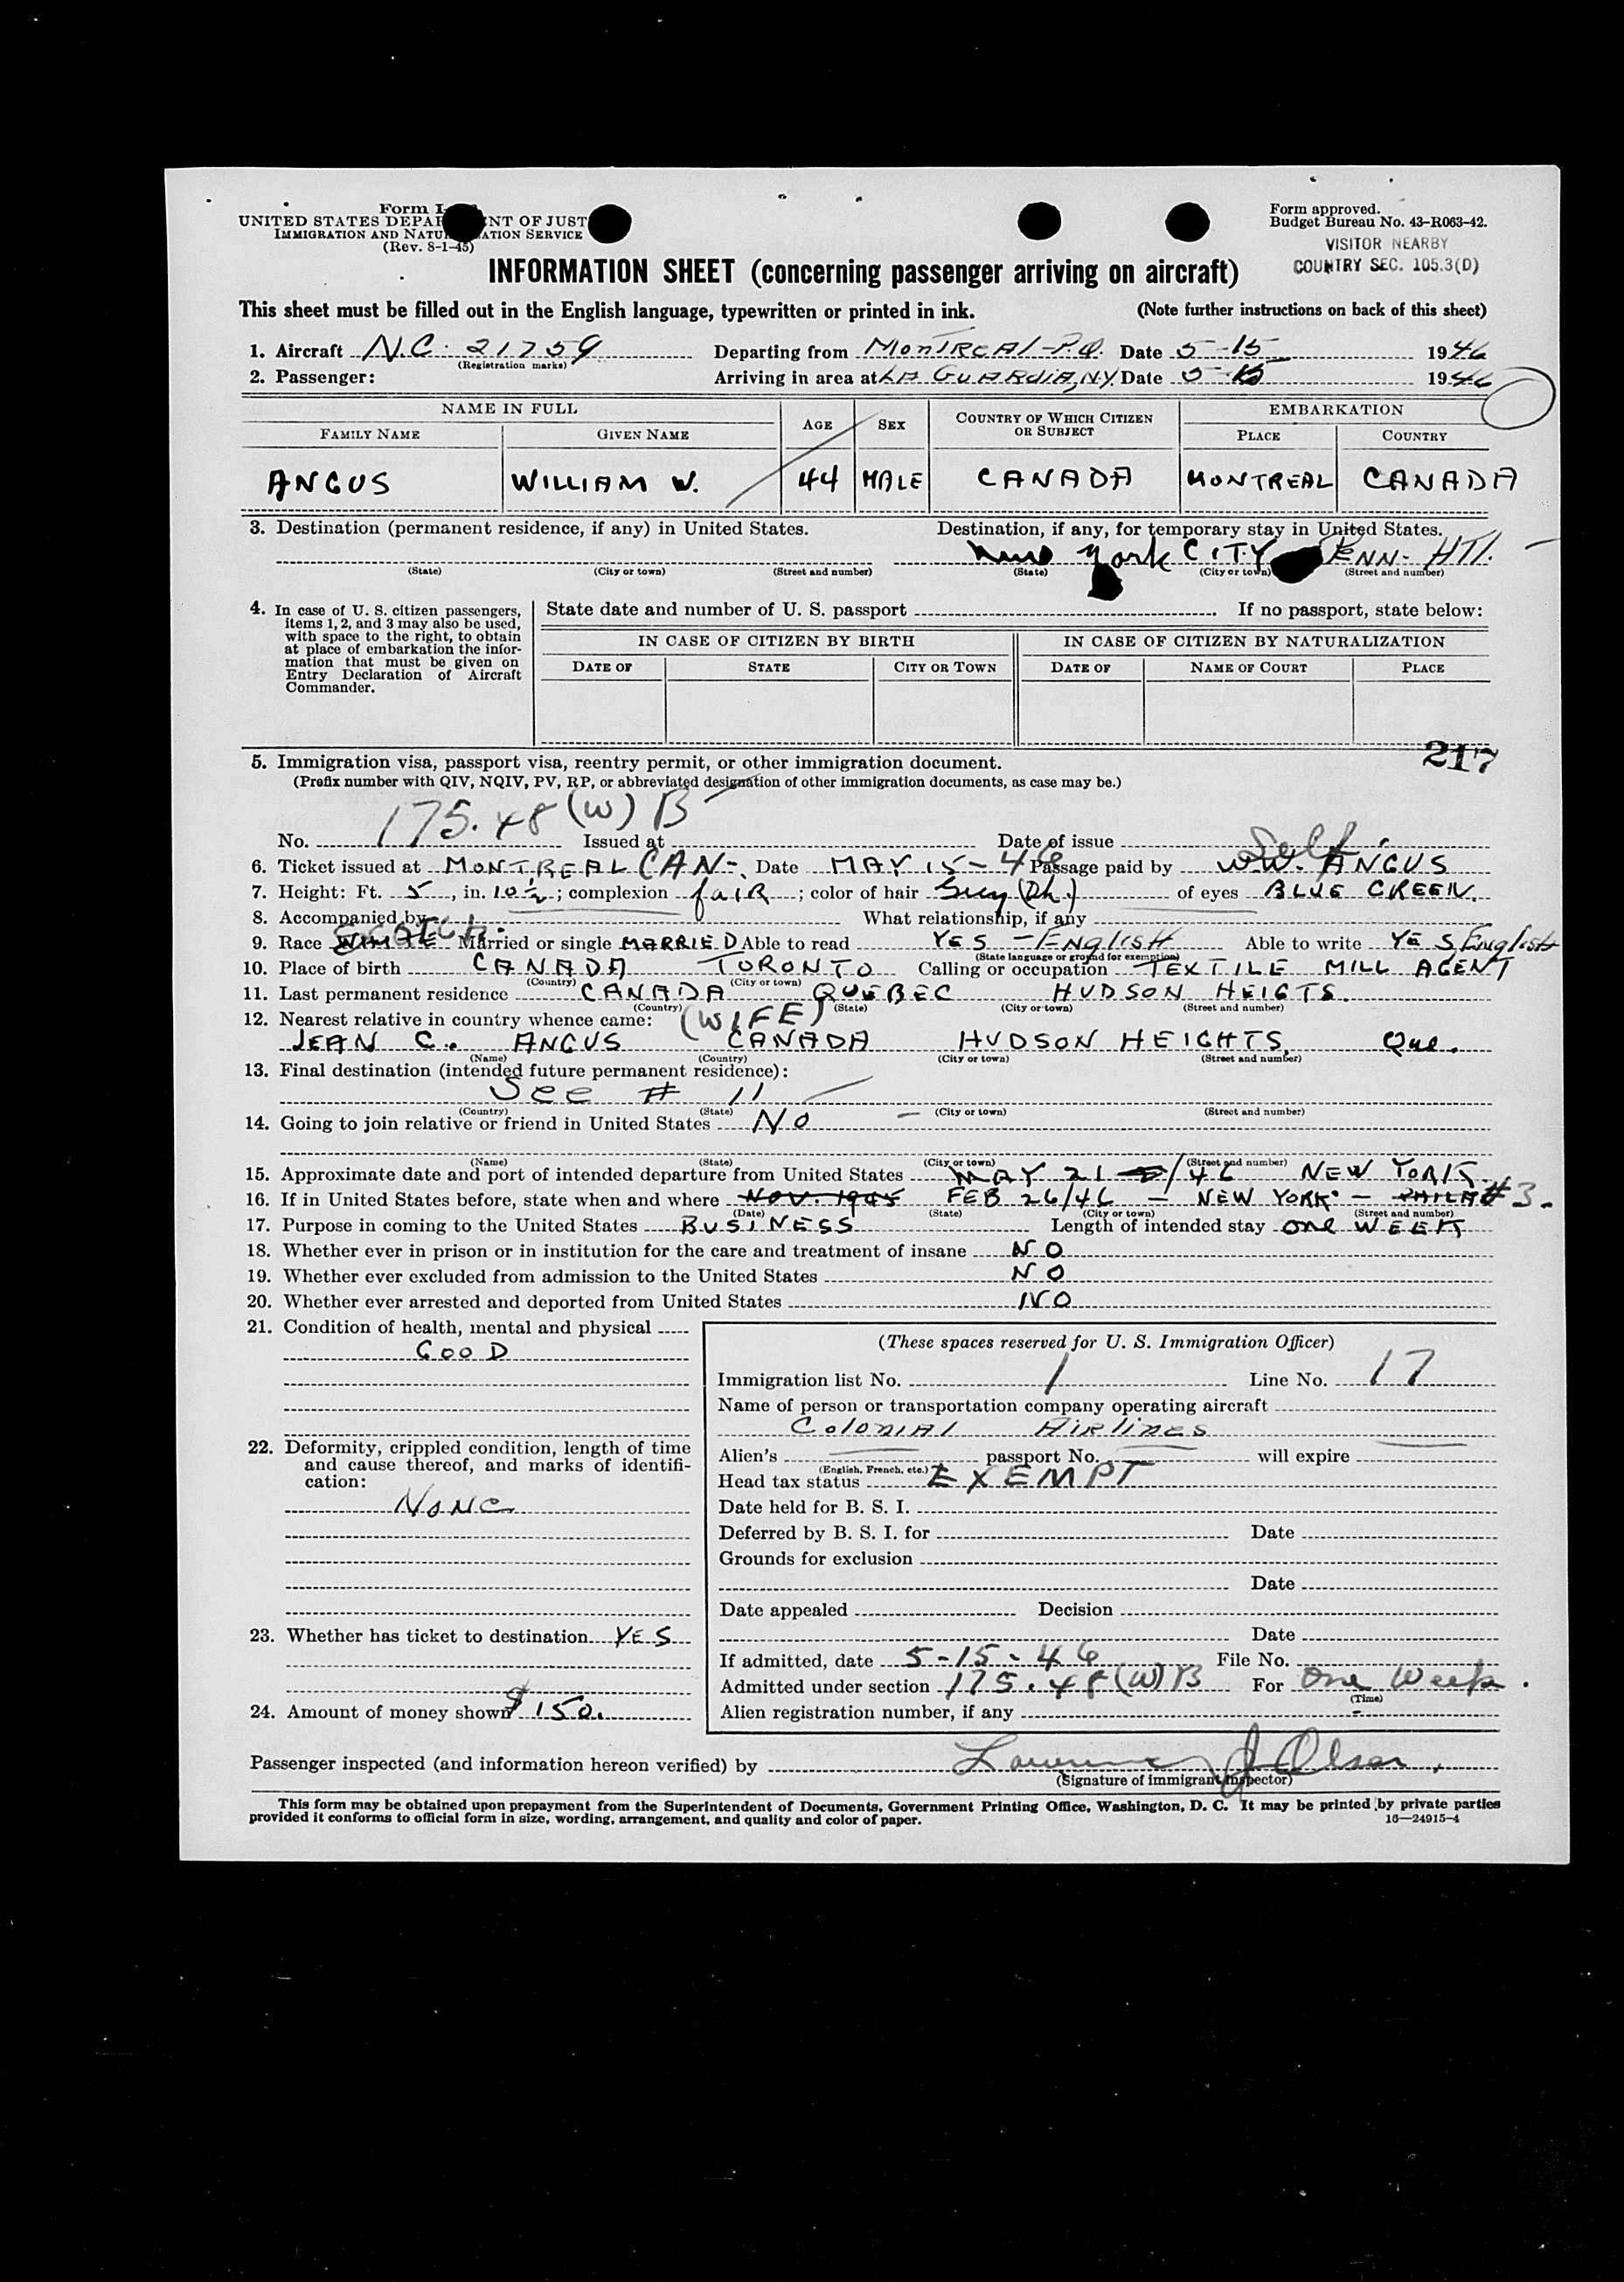 Form I-
UNITED STATES DEPA NT OF JUST
IMMIGRATION AND NATU ATION SERVICE
(Rev. 8-1-45)
Form approved.
Budget Bureau No. 43-R063-42.
VISITOR NEARBY
COUNTRY SEC. 105.3(D)
INFORMATION SHEET (concerning passenger arriving on aircraft)
This sheet must be filled out in the English language, typewritten or printed in ink. (Note further instructions on back of this sheet)
1. Aircraft N.C. 21759 Departing from MONTREAL-P.Q. Date 5-15 1946
(Registration marks)
2. Passenger: Arriving in area at LA GUARDIA, N.Y. Date 5-15 1946
NAME IN FULL AGE SEX COUNTRY OF WHICH CITIZEN OR SUBJECT EMBARKATION
FAMILY NAME GIVEN NAME PLACE COUNTRY
ANGUS WILLIAM W. 44 MALE CANADA MONTREAL CANADA
3. Destination (permanent residence, if any) in United States. Destination, if any, for temporary stay in United States.
New York CITY PENN- HTL.
(State) (City or town) (Street and number) (State) (City or town) (Street and number)
4. In case of U. S. citizen passengers,
items 1, 2, and 3 may also be used,
with space to the right, to obtain
at place of embarkation the infor-
mation that must be given on
Entry Declaration of Aircraft
Commander.
State date and number of U. S. passport If no passport, state below:
IN CASE OF CITIZEN BY BIRTH IN CASE OF CITIZEN BY NATURALIZATION
DATE OF STATE CITY OR TOWN DATE OF NAME OF COURT PLACE
217
5. Immigration visa, passport visa, reentry permit, or other immigration document.
(Prefix number with QIV, NQIV, PV, RP, or abbreviated designation of other immigration documents, as case may be.)
175.48 (W) B
No. Issued at Date of issue
Self
6. Ticket issued at MONTREAL CAN-. Date MAY 15-46 Passage paid by W.W. ANGUS
7. Height: Ft. 5, in. 10½; complexion faIR; color of hair Grey (Dk.) of eyes BLUE GREEN.
8. Accompanied by What relationship, if any
SCOTCH.
9. Race WHITE Married or single MARRIED Able to read YES - ENglisH Able to write YES English
(State language or ground for exemption)
10. Place of birth CANADA TORONTO Calling or occupation TEXTILE MILL AGENT
(Country) (City or town)
11. Last permanent residence CANADA QUEBEC HUDSON HEIGTS.
(Country) (State) (City or town) (Street and number)
12. Nearest relative in country whence came: (WIFE)
JEAN C. ANGUS CANADA HUDSON HEIGHTS, Que.
(Name) (Country) (City or town) (Street and number)
13. Final destination (intended future permanent residence):
See # 11
(Country) (State) (City or town) (Street and number)
14. Going to join relative or friend in United States No
(Name) (State) (City or town) (Street and number)
15. Approximate date and port of intended departure from United States MAY 21 /46 NEW YORK.
16. If in United States before, state when and where NOV. 1945 FEB 26/46 - NEW YORK - PHILA #3.
(Date) (State) (City or town) (Street and number)
17. Purpose in coming to the United States BUSINESS Length of intended stay one WEEK
18. Whether ever in prison or in institution for the care and treatment of insane NO
19. Whether ever excluded from admission to the United States NO
20. Whether ever arrested and deported from United States NO
21. Condition of health, mental and physical
GOOD
22. Deformity, crippled condition, length of time
and cause thereof, and marks of identifi-
cation:
NONE
23. Whether has ticket to destination YES
24. Amount of money shown $150.
(These spaces reserved for U. S. Immigration Officer)
Immigration list No. 1 Line No. 17
Name of person or transportation company operating aircraft
COlONIAl AIRlINES
Alien's passport No. will expire
(English, French, etc.)
Head tax status EXEMPT
Date held for B. S. I.
Deferred by B. S. I. for Date
Grounds for exclusion
Date
Date appealed Decision
Date
If admitted, date 5-15-46 File No.
Admitted under section 175.48(W)B For One Week.
(Time)
Alien registration number, if any -
Passenger inspected (and information hereon verified) by Lawrence J Olsen
(Signature of immigrant inspector)
This form may be obtained upon prepayment from the Superintendent of Documents, Government Printing Office, Washington, D. C. It may be printed by private parties
provided it conforms to official form in size, wording, arrangement, and quality and color of paper. 16—24915-4